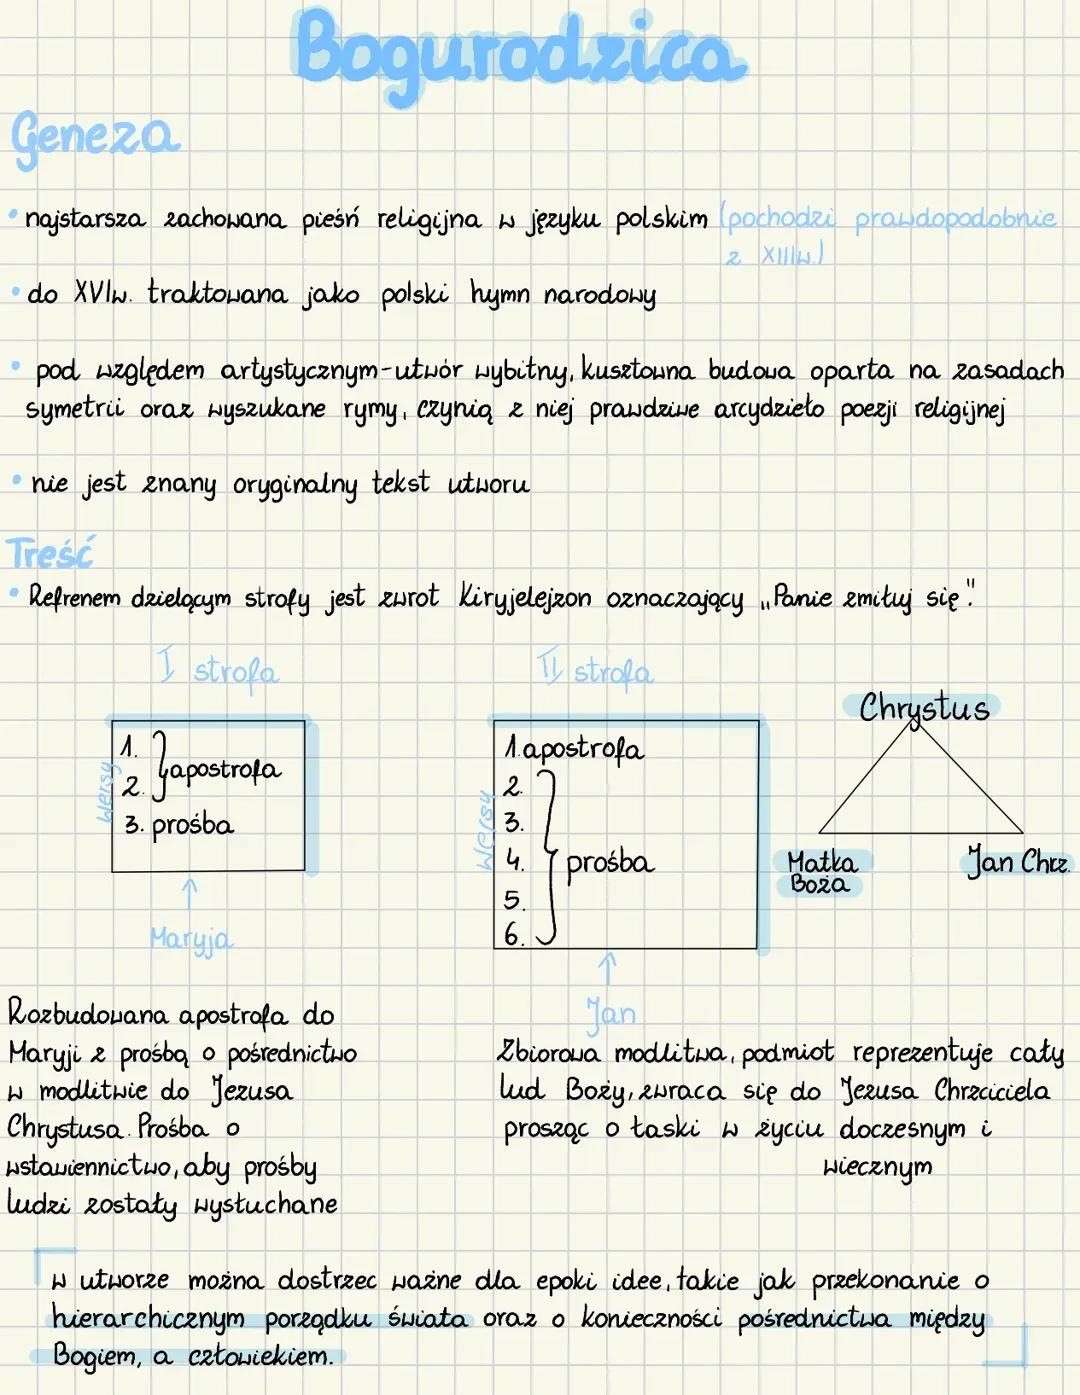 Bogurodzica
Geneza
• najstarsza zachowana pieśń religijna w języku polskim (pochodzi prawdopodobnie
z XIIIw.)
• do XVIw. traktowana jako polski hymn narodowy
• pod względem artystycznym-utwór wybitny, kusztowna budowa oparta na zasadach
symetrii oraz wyszukane rymy, czynią z niej prawdziwe arcydzieło poezji religijnej
• nie jest znany oryginalny tekst utworu
Treść
• Refrenem dzielącym strofy jest zwrot Kiryjelejzon oznaczający „Panie zmiłuj się".
I strofa
wersy
1.
2.
apostrofa
3. prośba
Maryja
II strofa
wersy
1.apostrofa
2.
3.
4.
5.
6.
prośba
Jan
Chrystus
Matka
Boża
Jan Chrz.
Rozbudowana apostrofa do
Maryji z prośbą o pośrednictwo
w modlitwie do Jezusa
Chrystusa. Prośba o
wstawiennictwo, aby prośby
ludzi zostały wysłuchane
Zbiorowa modlitwa, podmiot reprezentuje cały
lud Boży, zwraca się do Jezusa Chrzciciela
prosząc o łaski w życiu doczesnym i
wiecznym
w utworze można dostrzec ważne dla epoki idee, takie jak przekonanie o
hierarchicznym porządku świata oraz o konieczności pośrednictwa między
Bogiem, a człowiekiem.